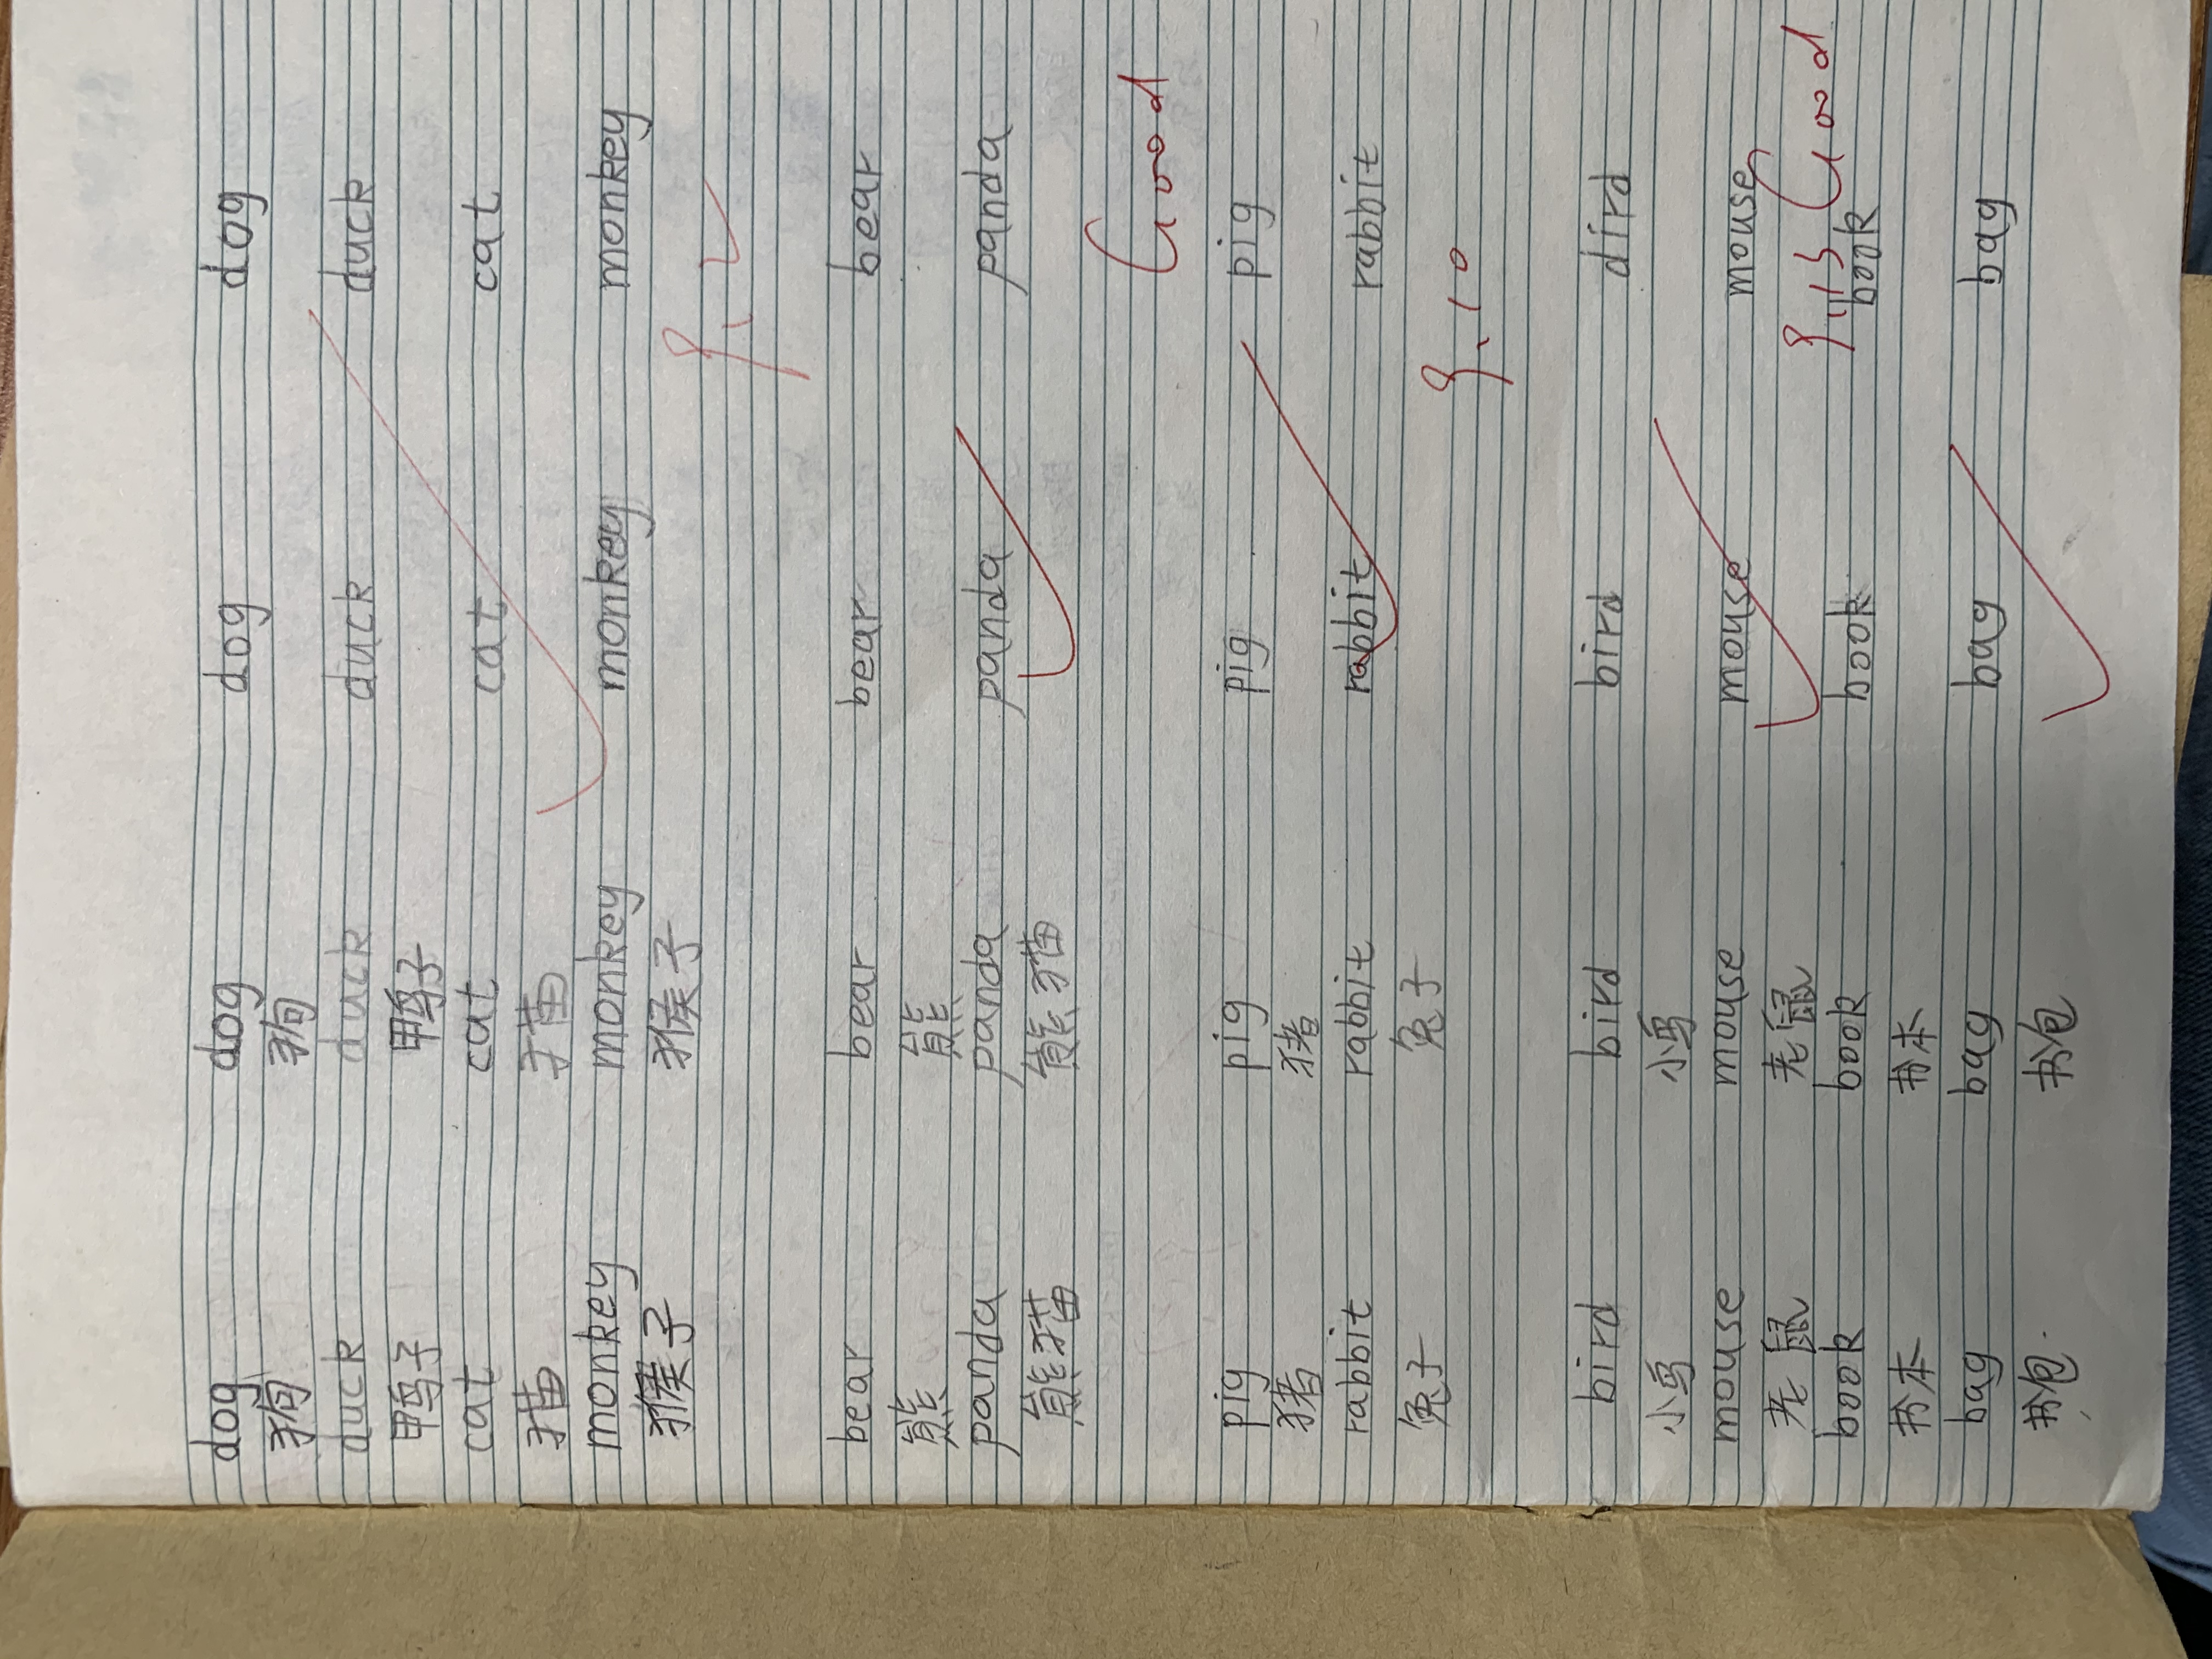 dog dog dog dog
狗 狗
duck duck duck duck
鸭子 鸭子
cat cat cat cat
猫 猫
monkey monkey monkey monkey
猴子 猴子
9.2
bear bear bear bear
熊 熊
panda panda panda panda
熊猫 熊猫
Good
pig pig pig pig
猪 猪
rabbit rabbit rabbit rabbit
兔子 兔子
9.10
bird bird bird dird
小鸟 小鸟
mouse mouse mouse mouse
老鼠 老鼠
9.13 Good
book book book book
书本 书本
bag bag bag bag
书包 书包